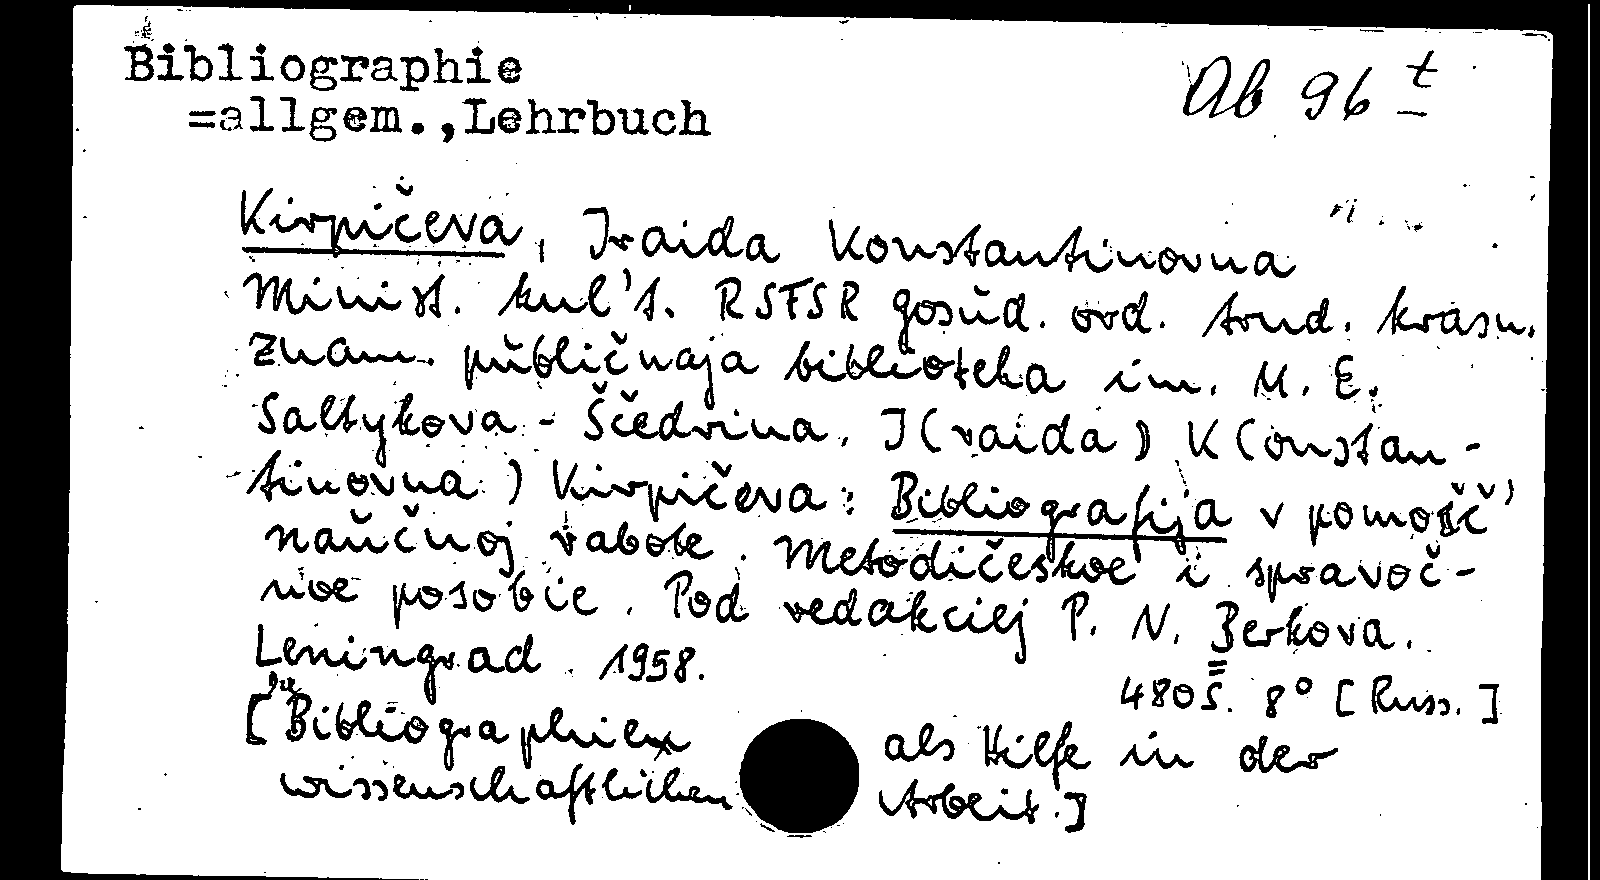 Bibliographie
=allgem.,Lehrbuch
Ab 96 t
Kirpičeva, Iraida Konstantinovna
Minist. kul't. RSFSR gosud. ord. trud. krasn.
Znam. publičnaja biblioteka im. M. E.
Saltykova-Ščedrina. I(raida) K(onstan-
tinovna) Kirpičeva: Bibliografija v pomošč'
naučnoj rabote. Metodičeskoe i spravoč-
noe posobie. Pod redakciej P. N. Berkova.
Leningrad. 1958.
480 S. 8° [Russ.]
[Die Bibliographie als Hilfe in der
wissenschaftlichen Arbeit.]